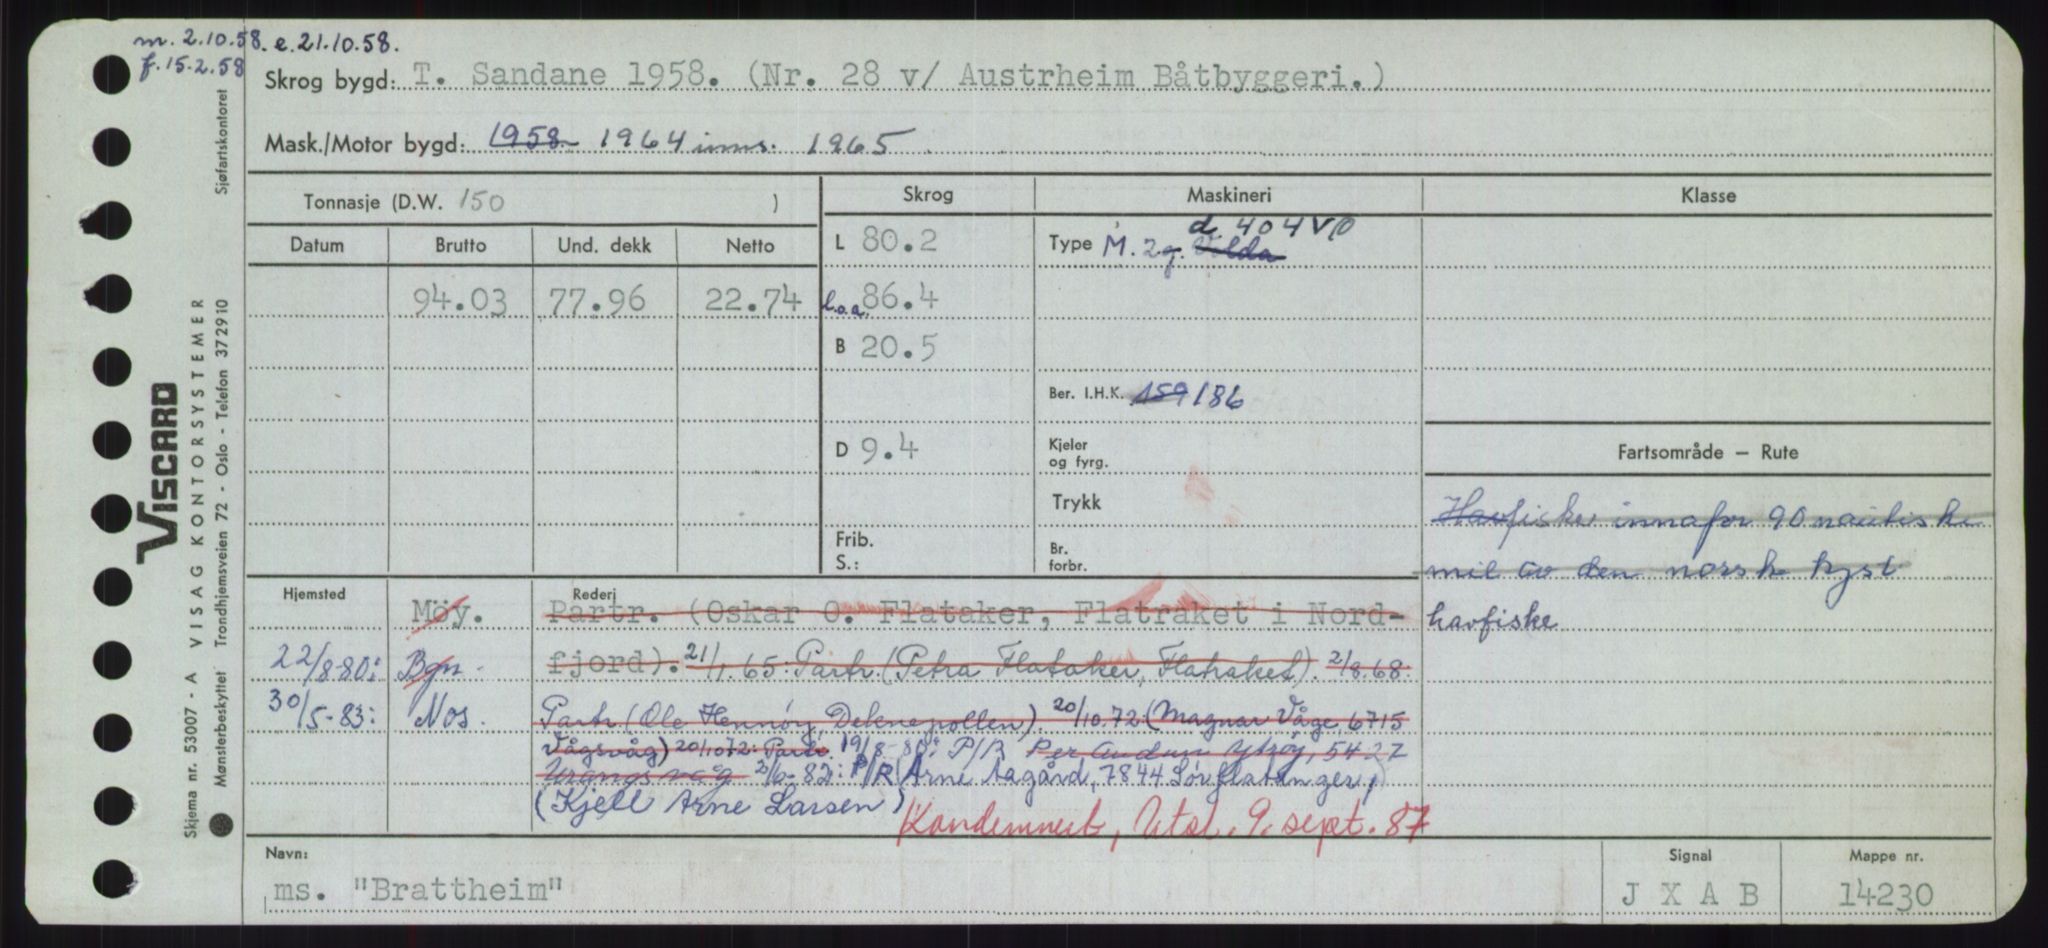 m. 2.10.58. e. 21.10.58.
f. 15.2.58
Skrog bygd: T. Sandane 1958. (Nr. 28 v/ Austrheim Båtbyggeri.)
Mask./Motor bygd: 1958 1964 inns. 1965
Tonnasje (D.W. 150 )
Skrog
Maskineri
Klasse
Datum Brutto Und. dekk Netto
94.03 77.96 22.74
L 80.2
l.o.a. 86.4
B 20.5
D 9.4
Frib.
S.:
d. 404 VO
Type M. 2q. Volda
Ber. I.H.K. 159 186
Kjeler
og fyrg.
Trykk
Br.
forbr.
Fartsområde — Rute
Havfiske innafor 90 nautiske
mil av den norske kyst
havfiske
Hjemsted
Rederi
Möy. Partr. (Oskar O. Flataker, Flatraket i Nord-
22/8-80: Bgn. fjord). 21/1.65: Partr. (Petra Flataker, Flatraket). 2/8.68:
30/5-83: Nos. Partr. (Ole Hennöy, Deknepollen). 20/10.72: (Magnar Våge, 6715
Vågsvåg) 20/10 72: Partr. 19/8-80: P/R Per Audun Ytröy, 5427
Urangsvåg 2/6-82: P/R (Arne Aagård, 7844 Sörflatanger,)
(Kjell Arne Larsen)
Kondemnert, Utsl. 9. sept. 87
Navn:
ms. "Brattheim"
Signal
J X A B
Mappe nr.
14230
Skjema nr. 53007 - A VISAG KONTORSYSTEMER
Mønsterbeskyttet Trondhjemsveien 72 - Oslo - Telefon 372910
Sjøfartskontoret
VISCARD